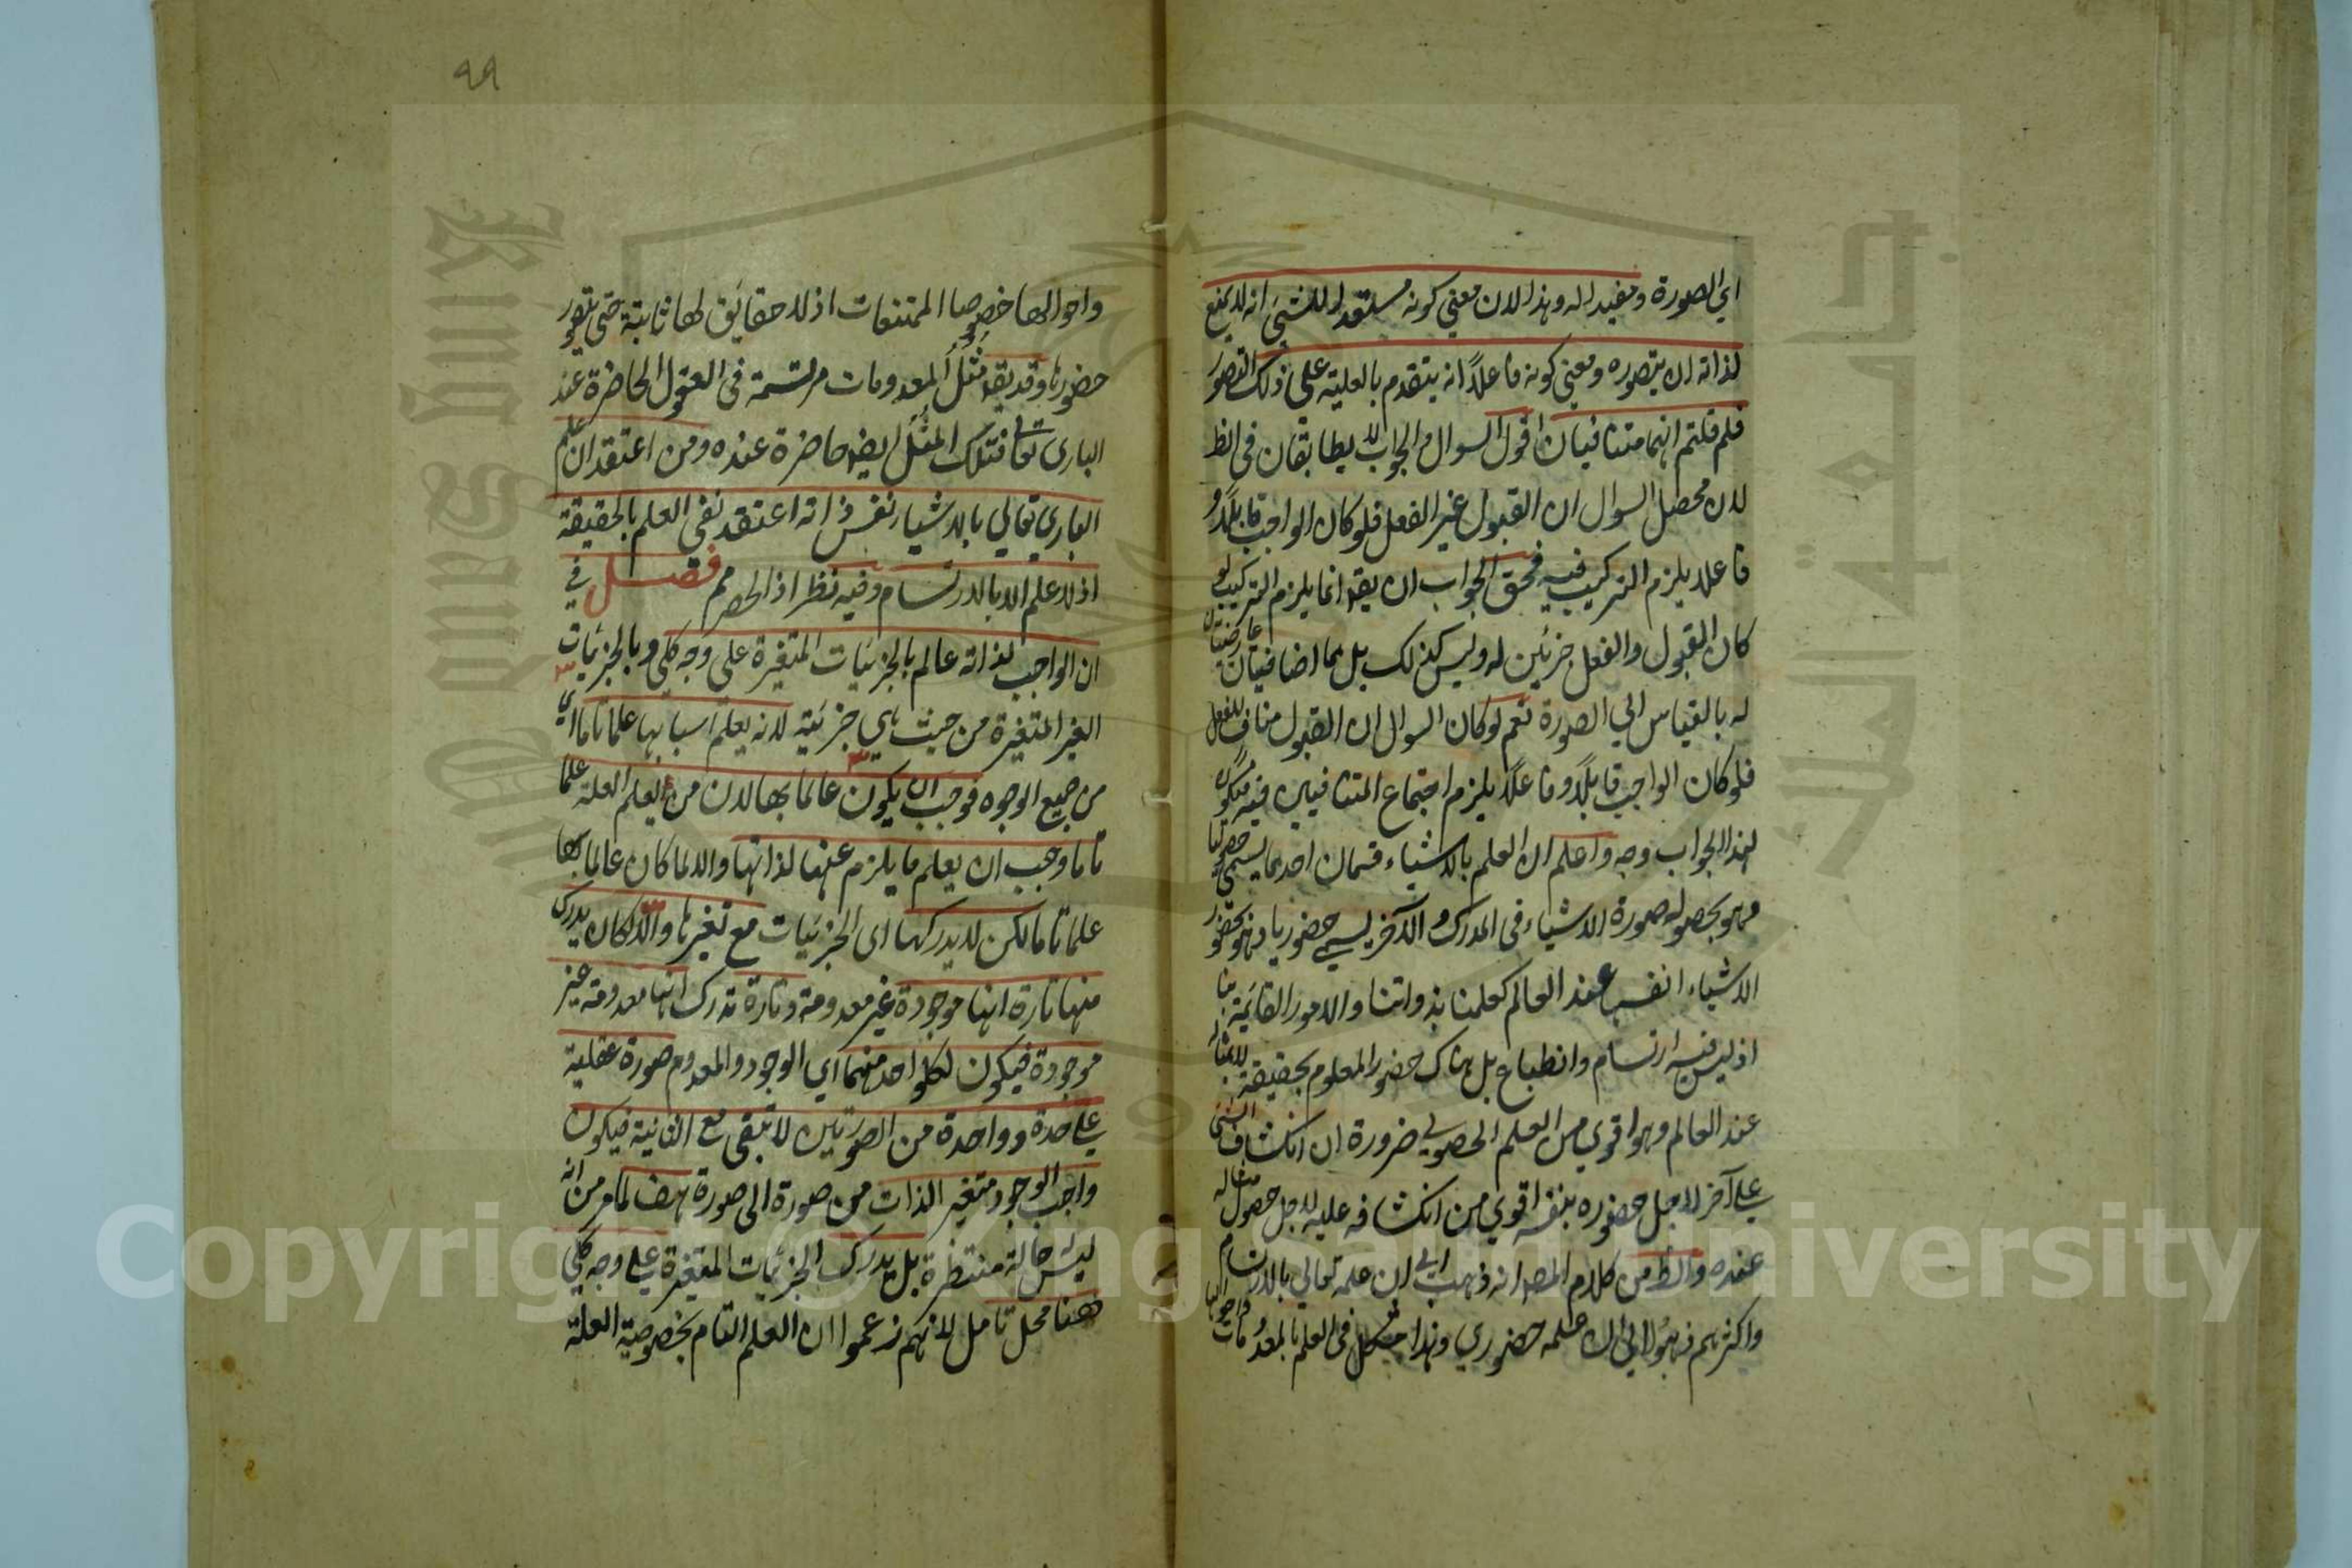 اي الصورة ومفيدا له وهذا لان معني كونه مستعدا للشيئ انه لا يمنع
لذاته ان يتصوره ومعني كونه فاعلاً انه يتقدم بالعلية علي ذلك التصور
فلم قلتم انهما متنافيان اقول السوال والجواب لا يطابقان في الظ
لان محصل السوال ان القبول غير الفعل فلو كان الواجب قابلاً و
فاعلا يلزم التركيب فيه فحق الجواب ان يقه انما يلزم التركيب لو
كان القبول والفعل جزئين له وليس كذلك بل هما اضافيتان عارضتان
له بالقياس الي الصورة نعم لو كان السوال ان القبول مناف للفعل
فلو كان الواجب قابلاً وفاعلاً يلزم اجتماع المتنافيين فيه فيكون
لهذا الجواب وجه واعلم ان العلم بالاشياء قسمان احدهما يسمي حصوليا
وهو بحصول صورة الاشياء في المدرك والآخر يسمي حضوريا وهو بحضور
الاشياء انفسها عند العالم كعلمنا بذواتنا والامور القائمة بنا
اذ ليس فيه ارتسام وانطباع بل هناك حضور المعلوم بحقيقته لا بمثاله
عند العالم وهو اقوي من العلم الحصولي ضرورة ان انكشاف الشئ
علي آخر لاجل حضوره بنفسه اقوي من انكشافه عليه لاجل حصول مثاله
عنده والظ من كلام المصه انه ذهب الي ان علمه تعالي بالارتسام
واكثرهم ذهبوا الي ان علمه حضوري وهذا مشكل في العلم بالمعدومات
واحوالها
٩٩
واحوالها خصوصا الممتنعات اذ لا حقايق لها ثابتة حتي يتصور
حضورها وقد يقه مثل المعدومات مرتسمة في العقول الحاضرة عند
الباري تعالي فتلك المثل ايضه حاضرة عنده ومن اعتقد ان علم
الباري تعالي بالاشياء نفس ذاته اعتقد نفي العلم بالحقيقة
اذ لا علم الا بالارتسام وفيه نظر اذ الحصر مم فصل في
ان الواجب لذاته عالم بالجزئيات المتغيرة علي وجه كلي وبالجزئيات
الغير المتغيرة من حيث هي جزئية لانه يعلم اسبابها علما تاما اي
من جميع الوجوه فوجب ان يكون عالما بها لان من يعلم العلة علما
تاما وجب ان يعلم ما يلزم عنها لذاتها والا لما كان عالما بها
علما تاما لكن لا يدركها اي الجزئيات مع تغيرها والا لكان يدرك
منها تارة انها موجودة غير معدومة وتارة تدرك انها معدومة غير
موجودة فيكون لكل واحد منهما اي الوجود والمعدوم صورة عقلية
علي حدة وواحدة من الصورتين لا تبقي مع الثانية فيكون
واجب الوجود متغير الذات من صورة الي صورة هف لما مر من انه
ليس حالة منتظرة بل يدرك الجزئيات المتغيرة علي وجه كلي
ههنا محل تامل لانهم زعموا ان العلم التام بخصوصية العلة
Copyright © King Saud University